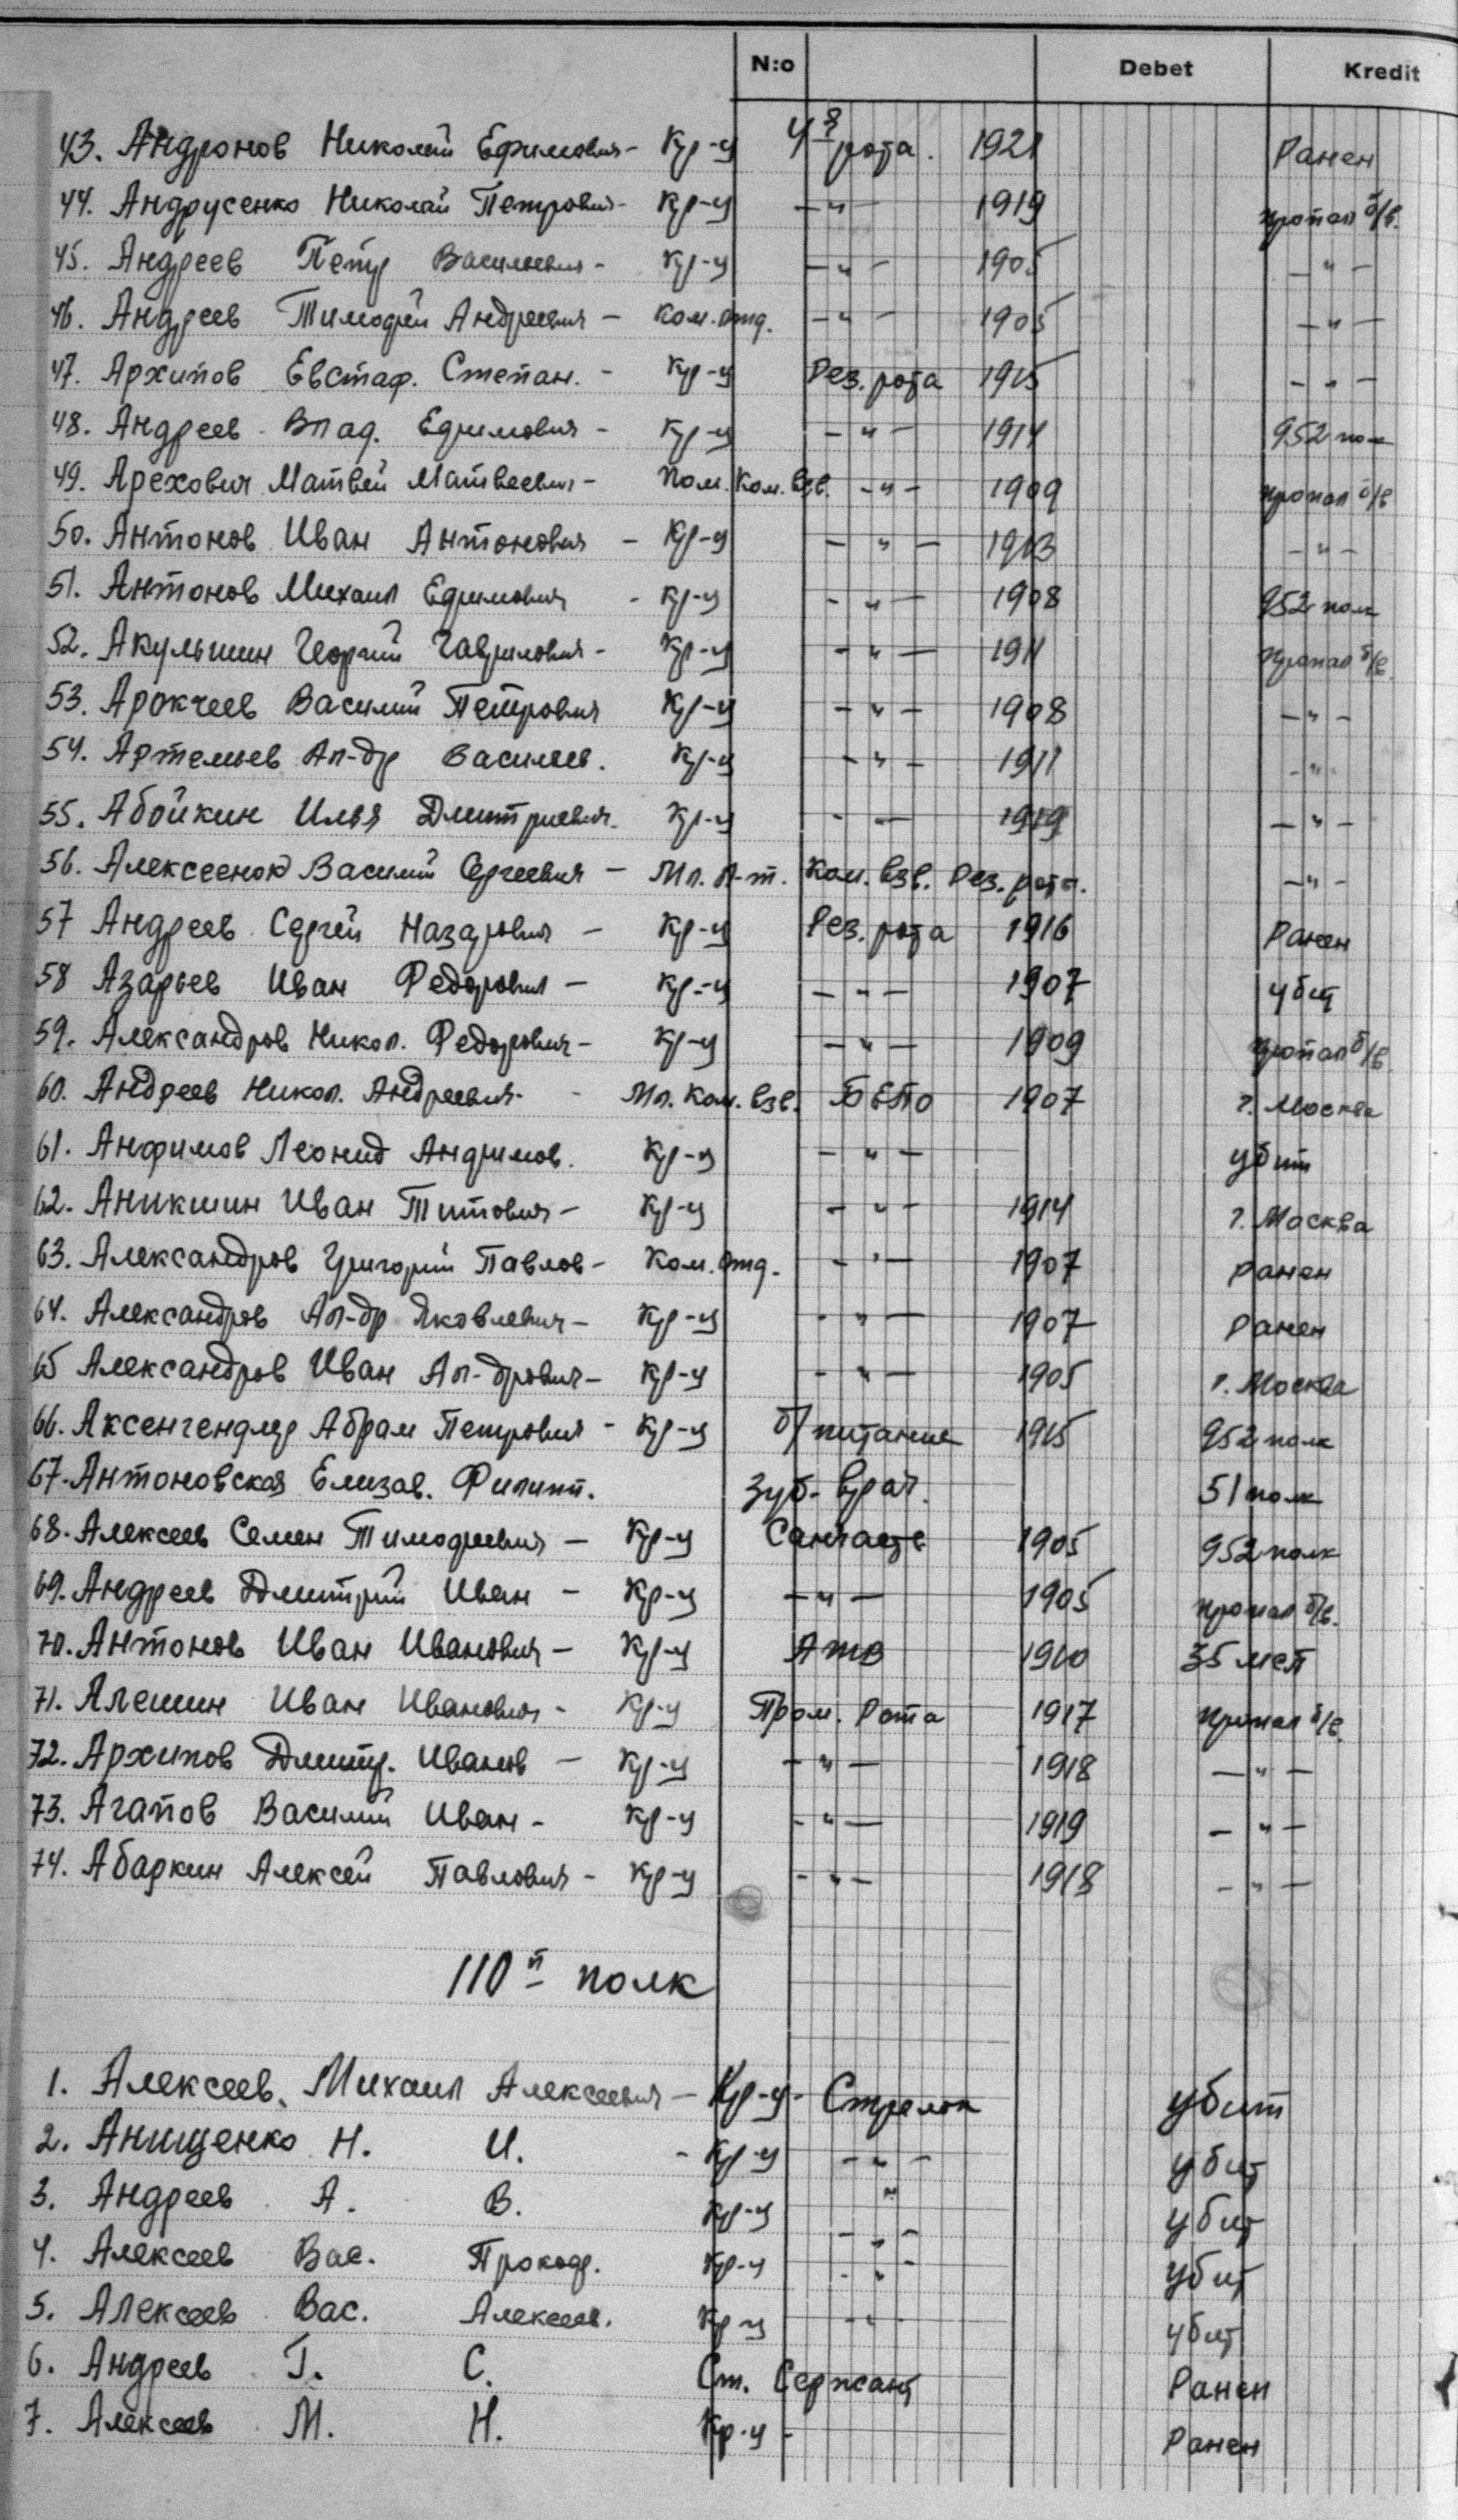 N:o Debet Kredit
43. Андронов Николай Ефимович - Кр-ц 4я рота. 1921 Ранен
44. Андрусенко Николай Петрович - Кр-ц -"- 1919 пропал б/в.
45. Андреев Петр Васильевич - Кр-ц -"- 1905 -"-
46. Андреев Тимофей Андреевич - Ком. отд. -"- 1905 -"-
47. Архипов Евстаф. Степан. - Кр-ц Рез. рота 1915 -"-
48. Андреев Влад. Ефимович - Кр-ц -"- 1914 952 полк
49. Арехович Матвей Матвеевич - Пом. Ком. Взв. -"- 1909 пропал б/в
50. Антонов Иван Антонович - Кр-ц -"- 1913 -"-
51. Антонов Михаил Ефимович - Кр-ц -"- 1908 952 полк
52. Акульшин Георгий Гаврилович - Кр-ц -"- 1911 пропал б/в.
53. Арокчеев Василий Петрович Кр-ц -"- 1908 -"-
54. Артемьев Ал-др Васильев. Кр-ц -"- 1911 -"-
55. Абойкин Илья Дмитриевич. Кр-ц - — 1919 -"-
56. Алексеенок Василий Сергеевич - Мл. Л-т. Ком. взв. Рез. рота. -"-
57 Андреев Сергей Назарович - Кр-ц Рез. рота 1916 Ранен
58 Азарьев Иван Федорович - Кр-ц -"- 1907 убит
59. Александров Никол. Федорович - Кр-ц -"- 1909 пропал б/в
60. Андреев Никол. Андреевич - Мл. Ком. Взв. БЕПО 1907 г. Москва
61. Анфимов Леонид Анфимов. Кр-ц -"- убит
62. Аникшин Иван Титович - Кр-ц -"- 1914 г. Москва
63. Александров Григорий Павлов - Ком. Отд. -"- 1907 Ранен
64. Александров Ал-др Яковлевич - Кр-ц -"- 1907 Ранен
65 Александров Иван Ал-дрович - Кр-ц -"- 1905 г. Москва
66. Аксенгендлер Абрам Петрович - Кр-ц б/питание 1915 952 полк
67. Антоновская Елизав. Филипп. Зуб. Врач. 51 полк
68. Алексеев Семен Тимофеевич - Кр-ц Санчасть 1905 952 полк
69. Андреев Дмитрий Иван - Кр-ц -"- 1905 пропал б/в.
70. Антонов Иван Иванович - Кр-ц АТВ 1910 35 мсп
71. Алешин Иван Иванович - Кр-ц Пром. Рота 1917 пропал б/в.
72. Архипов Дмитр. Иванов - Кр-ц -"- 1918 -"-
73. Агапов Василий Иван - Кр-ц -"- 1919 -"-
74. Абаркин Алексей Павлович - Кр-ц -"- 1918 -"-
110й полк
1. Алексеев, Михаил Алексеевич - Кр-ц - Стрелок убит
2. Анищенко Н. И. - Кр-ц -"- убит
3. Андреев А. В. Кр-ц " убит
4. Алексеев Вас. Прокоф. Кр-ц -"- убит
5. Алексеев Вас. Алексеев. Кр-ц -"- убит
6. Андреев Г. С. Ст. Сержант Ранен
7. Алексеев М. Н. Кр-ц - Ранен